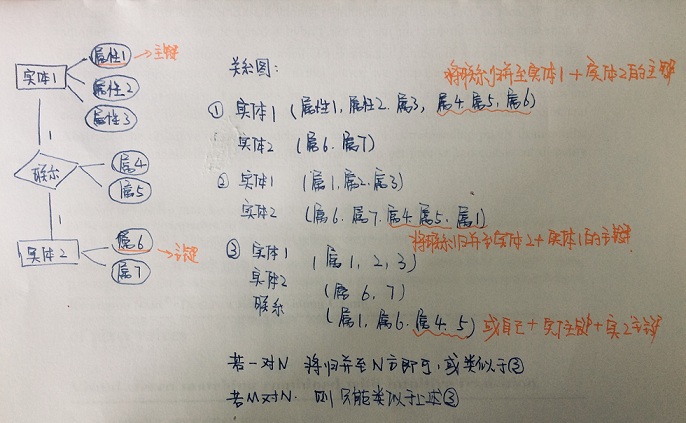 实体1
属性1 →主键
属性2
属性3
1
联系
属4
属5
1
实体2
属6 →主键
属7
关系图：
将联系归并至实体1+实体2的主键
① 实体1 (属性1, 属性2、属3, 属4、属5, 属6)
实体2 (属6、属7)
② 实体1 (属1、属2、属3)
实体2 (属6、属7、属4、属5、属1)
将联系归并至实体2+实体1的主键
③ 实体1 (属1, 2, 3)
实体2 (属6, 7)
联系 (属1, 属6、属4、5) 或自己+实1主键+实2主键
若一对N 将归并至N方即可, 或类似于③
若M对N. 则只能类似于上述③